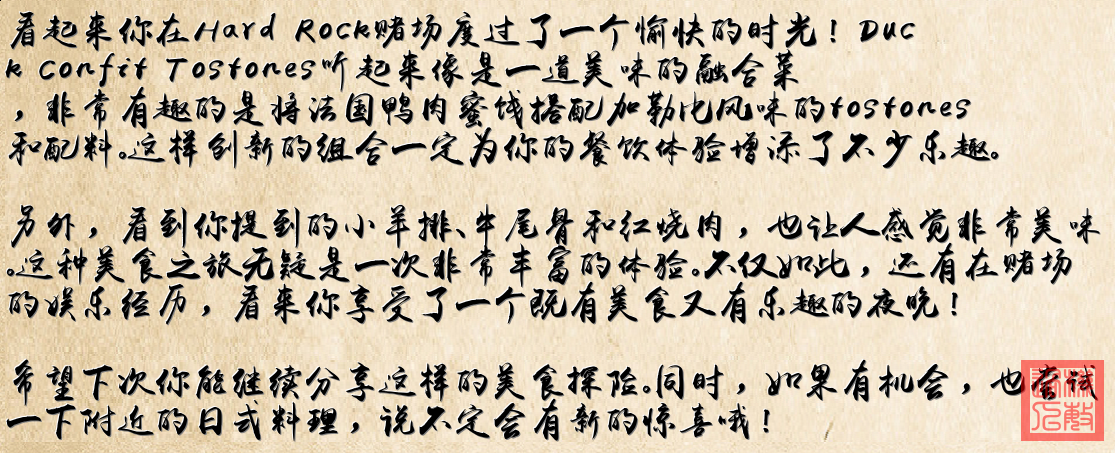 看起来你在Hard Rock赌场度过了一个愉快的时光！Duc
k Confit Tostones听起来像是一道美味的融合菜
，非常有趣的是将法国鸭肉蜜饯搭配加勒比风味的tostones
和配料。这样创新的组合一定为你的餐饮体验增添了不少乐趣。
另外，看到你提到的小羊排、牛尾骨和红烧肉，也让人感觉非常美味
。这种美食之旅无疑是一次非常丰富的体验。不仅如此，还有在赌场
的娱乐经历，看来你享受了一个既有美食又有乐趣的夜晚！
希望下次你能继续分享这样的美食探险。同时，如果有机会，也尝试
一下附近的日式料理，说不定会有新的惊喜哦！